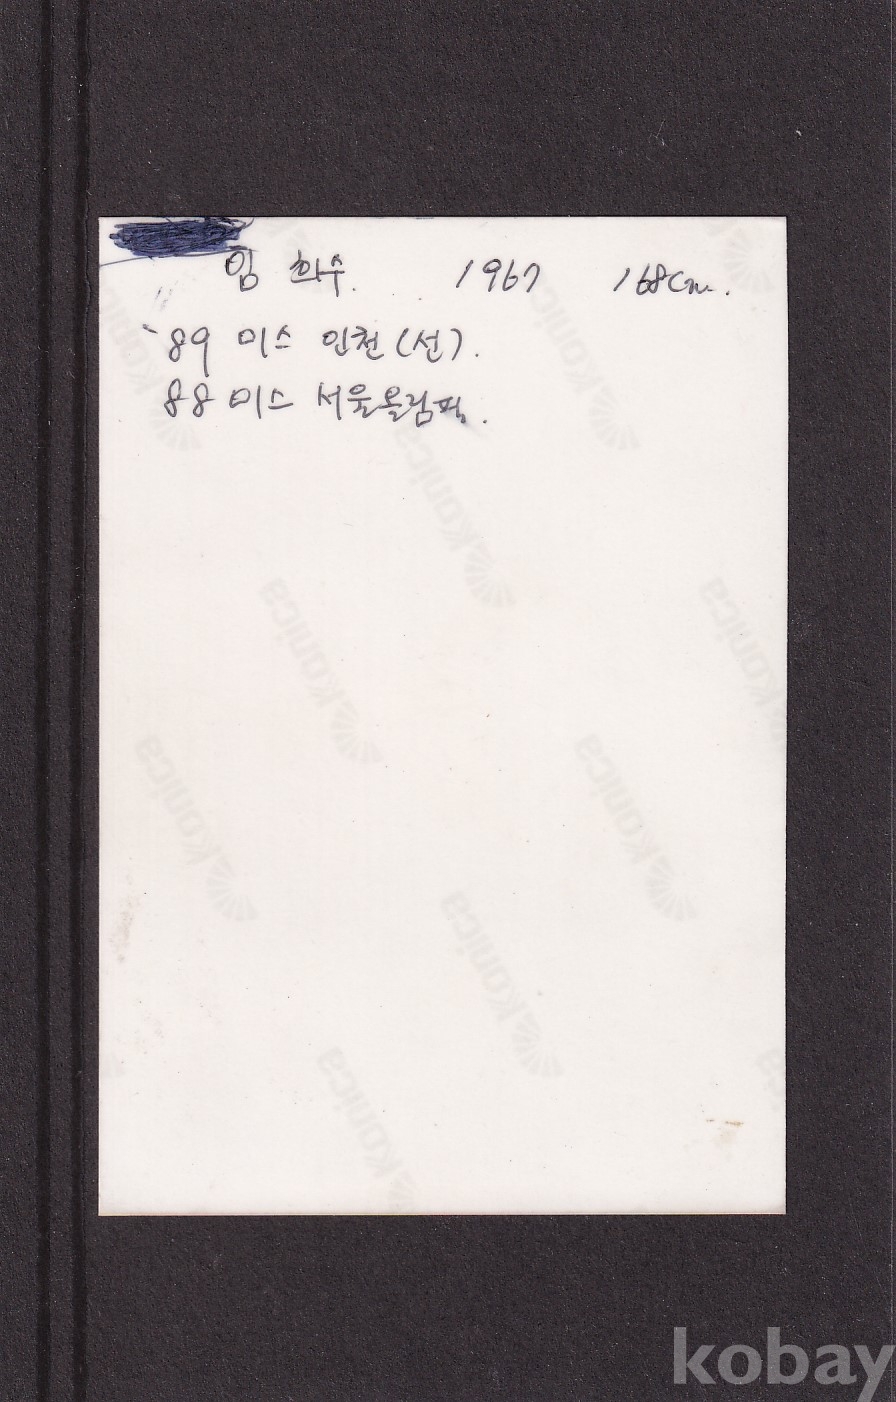 임 희수. 1967 168cm.
'89 미스 인천(선).
88 미스 서울올림픽.
konica
konica
konica
konica
konica
konica
konica
konica
konica
konica
kobay